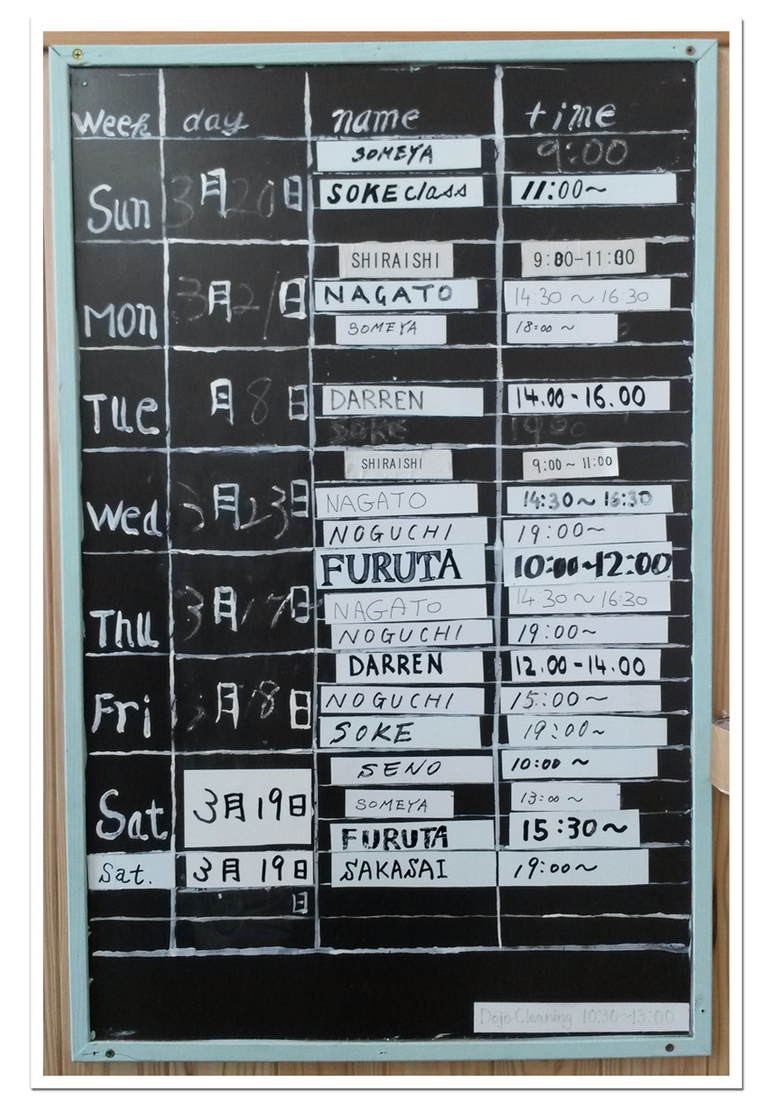 Week day name time
SOMEYA 9:00
Sun 3月20日 SOKE class 11:00~
SHIRAISHI 9:00-11:00
Mon 3月21日 NAGATO 14:30 ~ 16:30
SOMEYA 18:00 ~
Tue 月8日 DARREN 14.00 - 16.00
SOKE
SHIRAISHI 9:00 ~ 11:00
Wed 3月23日 NAGATO 14:30 ~ 16:30
NOGUCHI 19:00~
FURUTA 10:00~12:00
Thu 3月17日 NAGATO 14:30 ~ 16:30
NOGUCHI 19:00~
DARREN 12.00 - 14.00
Fri 月18日 NOGUCHI 15:00~
SOKE 19:00~
SENO 10:00 ~
Sat 3月19日 SOMEYA 13:00 ~
FURUTA 15:30~
Sat. 3月19日 SAKASAI 19:00~
日
Dojo Cleaning 10:30~13:00